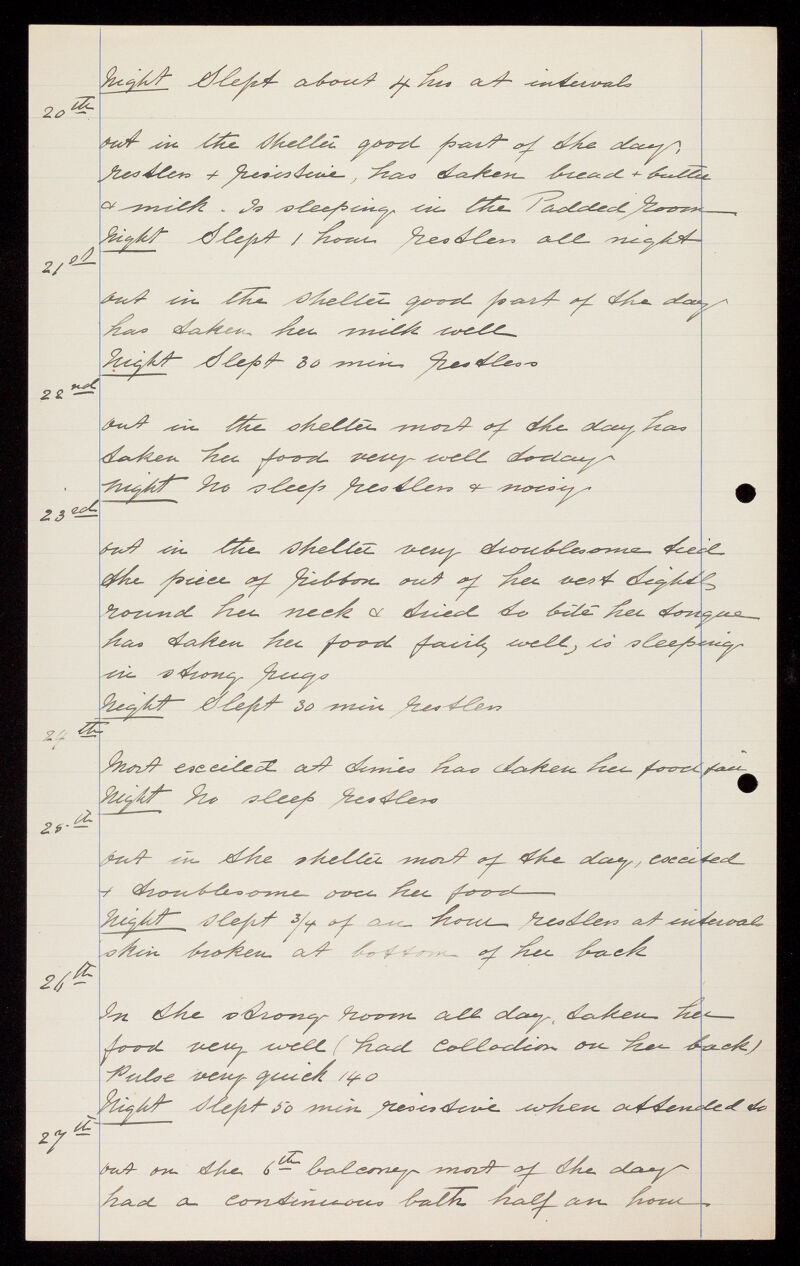 Night Slept about 4 hrs at intervals
20th
out in the shelter good part of the day,
restless + resistive, has taken bread + butter
& milk. Is sleeping in the Padded room
Night Slept 1 hour restless all night
21st
out in the shelter good part of the day
has taken her milk well
Night Slept 30 min restless
22nd
out in the shelter most of the day has
taken her food very well today
Night No sleep restless & noisy
23rd
out in the shelter very troublesome tied
the piece of ribbon out of her vest tightly
round her neck & tried to bite her tongue
has taken her food fairly well, is sleeping
in strong rugs
Night Slept 30 min restless
24th
Most excited at times has taken her food fair
Night No sleep restless
25th
out in the shelter most of the day, excited
+ troublesome over her food
Night slept 3/4 of an hour restless at intervals
skin broken at bottom of her back
26th
In the strong room all day, taken her
food very well (had Collodion on her back)
Pulse very quick 140
Night Slept 50 min resistive when attended to
27th
out on the 6th balconey most of the day
had a continuous bath half an hour